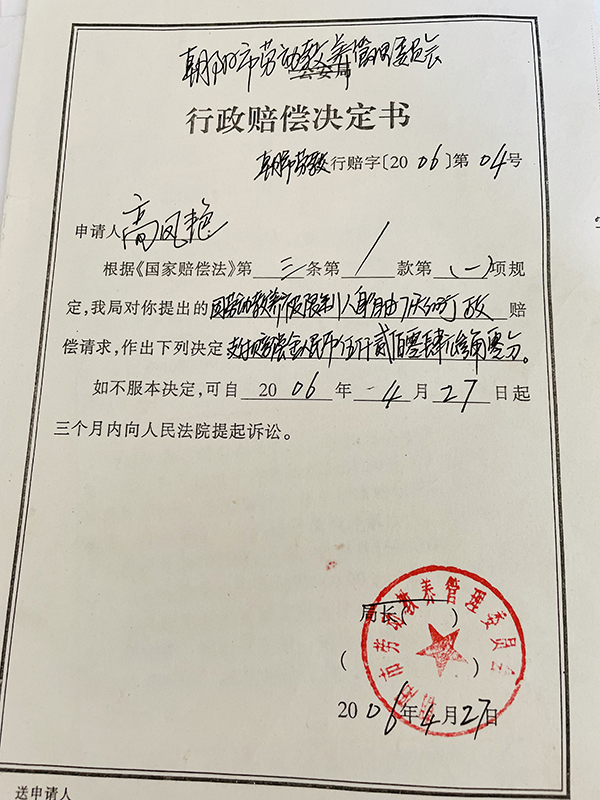 朝阳市劳动教养管理委员会
公安局
行政赔偿决定书
朝阳劳教行赔字〔2006〕第04号
申请人高凤艳
根据《国家赔偿法》第三条第1款第(一)项规
定,我局对你提出的因劳动教养被限制人身自由 赔
偿请求,作出下列决定支付赔偿金人民币伍仟贰佰零肆元 角零分。
如不服本决定,可自2006年4月27日起
三个月内向人民法院提起诉讼。
局长( )
( )
市劳动教养管理委员会
2006年4月27日
送申请人